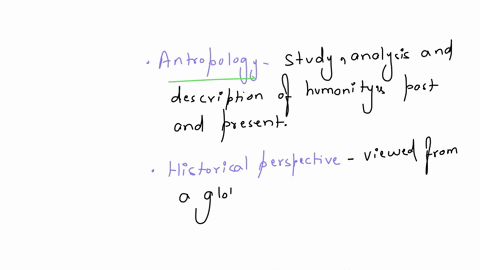 · Antropology - study, analysis and
description of humanitys past
and present.
· Historical perspective - viewed from
a glo